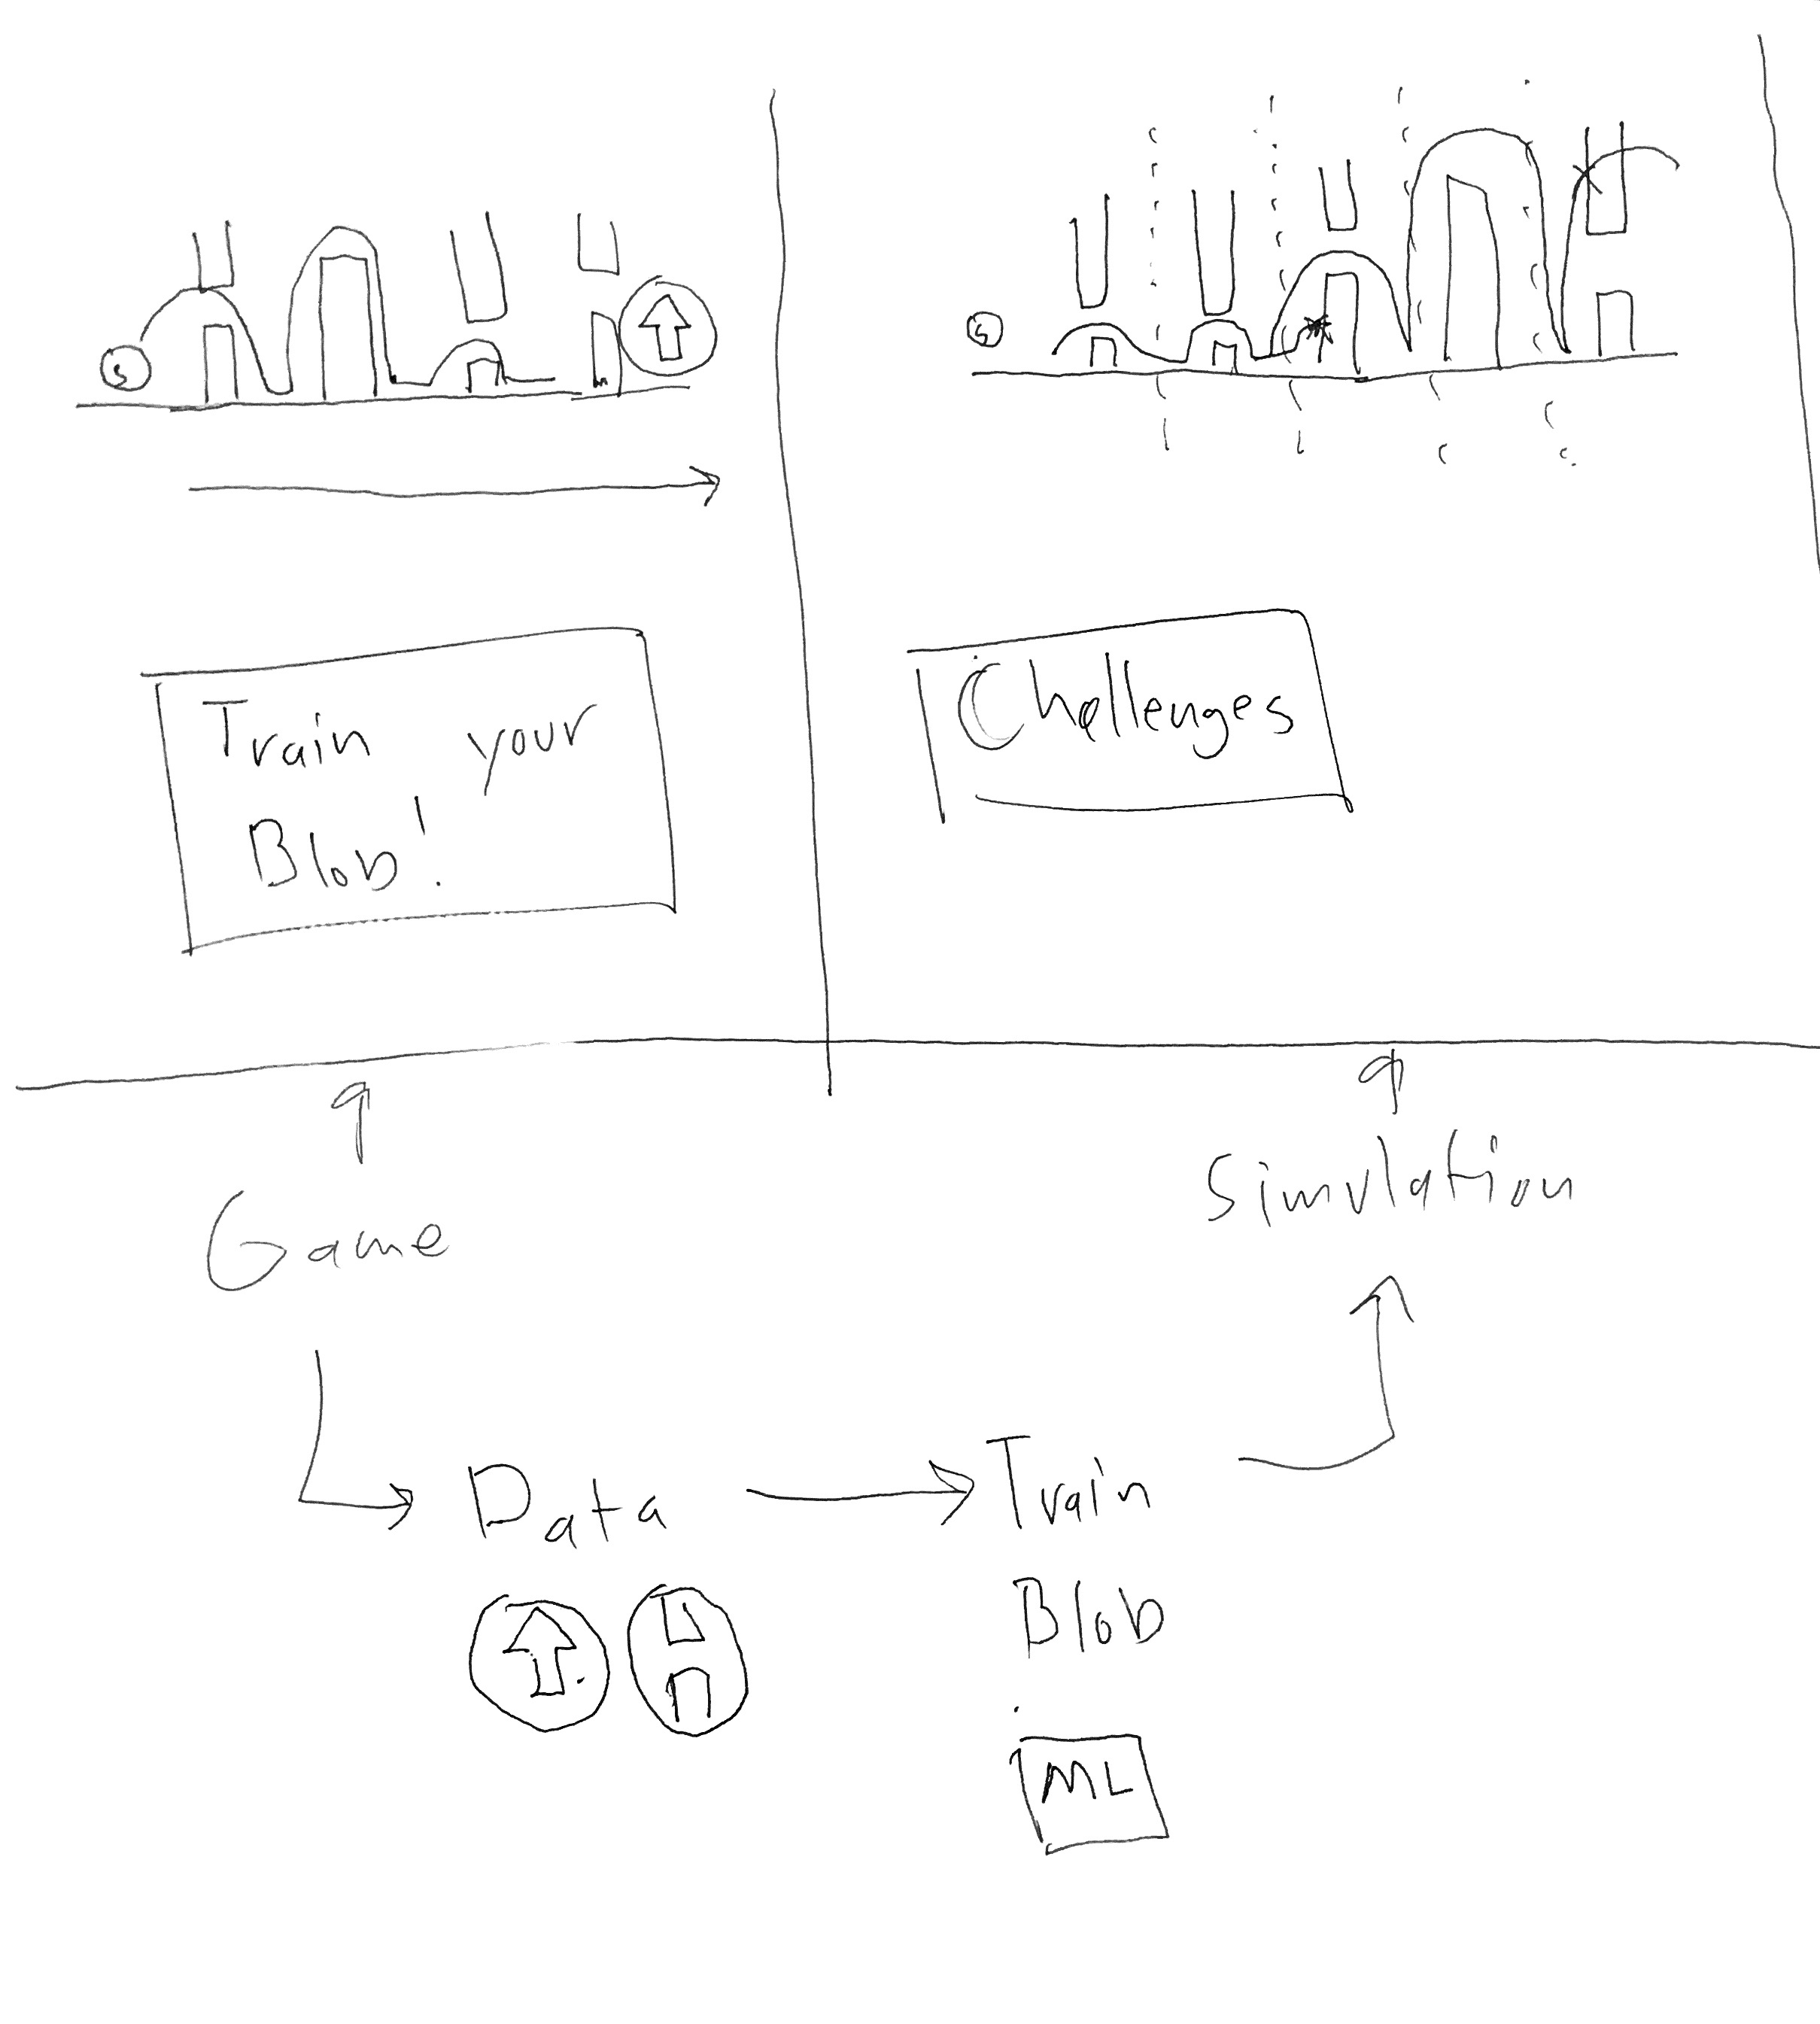 Train your
Blob!
Challenges
Game
Simulation
Data
Train
Blob
ML